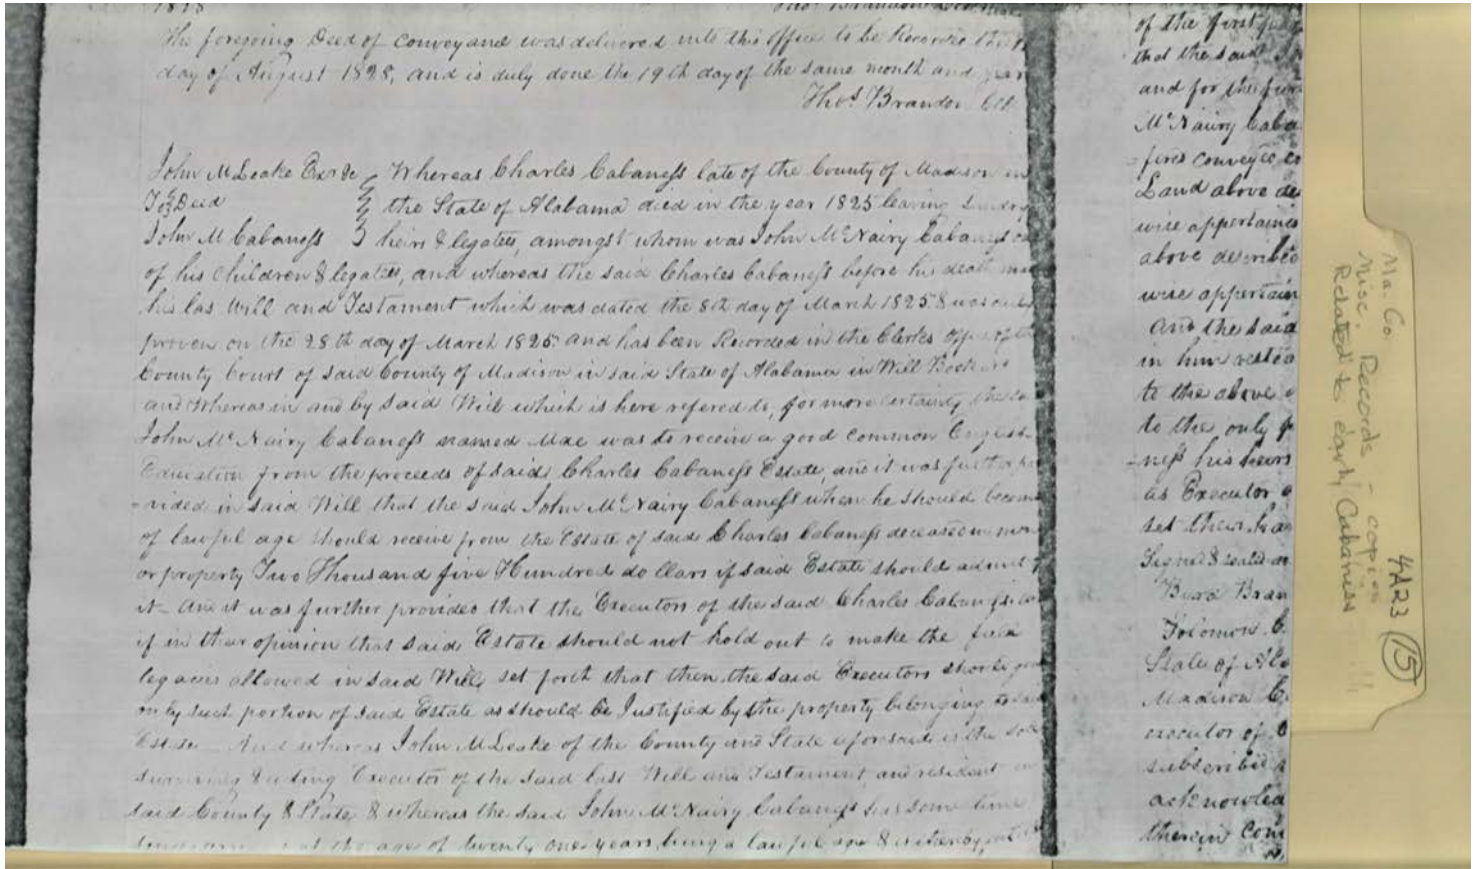 The foregoing Deed of Conveyance was delivered into this Office to be Recorded the
day of August 1828, and is duly done the 19th day of the same month and year
Thos Brandon Clk
John M Leake Exr &c
To Deed
John M Cabaness
Whereas Charles Cabaness late of the County of Madison in
the State of Alabama died in the year 1825 leaving
heirs & legatees, amongst whom was John McNairy Cabaness
of his Children & legatees, and whereas the said Charles Cabaness before his death
his las Will and Testament which was dated the 8th day of March 1825 & was
proven on the 28th day of March 1825 and has been Recorded in the Clerks Office of the
County Court of said County of Madison in said State of Alabama in Will Book
and whereas in and by said Will which is here refered to, for more certainty the
John McNairy Cabaness named Mac was to receive a good common English
Education from the proceeds of said Charles Cabaness Estate, and it was further pro
-vided in said Will that the said John McNairy Cabaness when he should become
of lawful age should receive from the Estate of said Charles Cabaness deceased in
or property Two Thousand five Hundred dollars if said Estate should admit
it - And it was further provided that the Executors of the said Charles Cabaness
if in their opinion that said Estate should not hold out to make the full
legacies allowed in said Will, set forth that then the said Executors should
only such portion of said Estate as should be Justified by the property belonging to said
Estate - And whereas John M Leake of the County and State aforesaid is the sole
surviving & acting Executor of the said last Will and Testament, and resident in
said County & State & whereas the said John McNairy Cabaness has some time
at the age of twenty one years, being a lawful age &
of the first
that the said
and for the
McNairy Caba
Land above de
wise appertain
above describe
wise appertain
And the said
in him vested
to the above
to the only
-ness his heirs
as Executor
set their han
Signed & sealed
Bran
Solomon C
State of Ala
Madison C
executor of
subscribed
acknowled
therein Con
Ma. Co.
Misc. Records - copies
Related to early Cabaniss
4A23 (15)